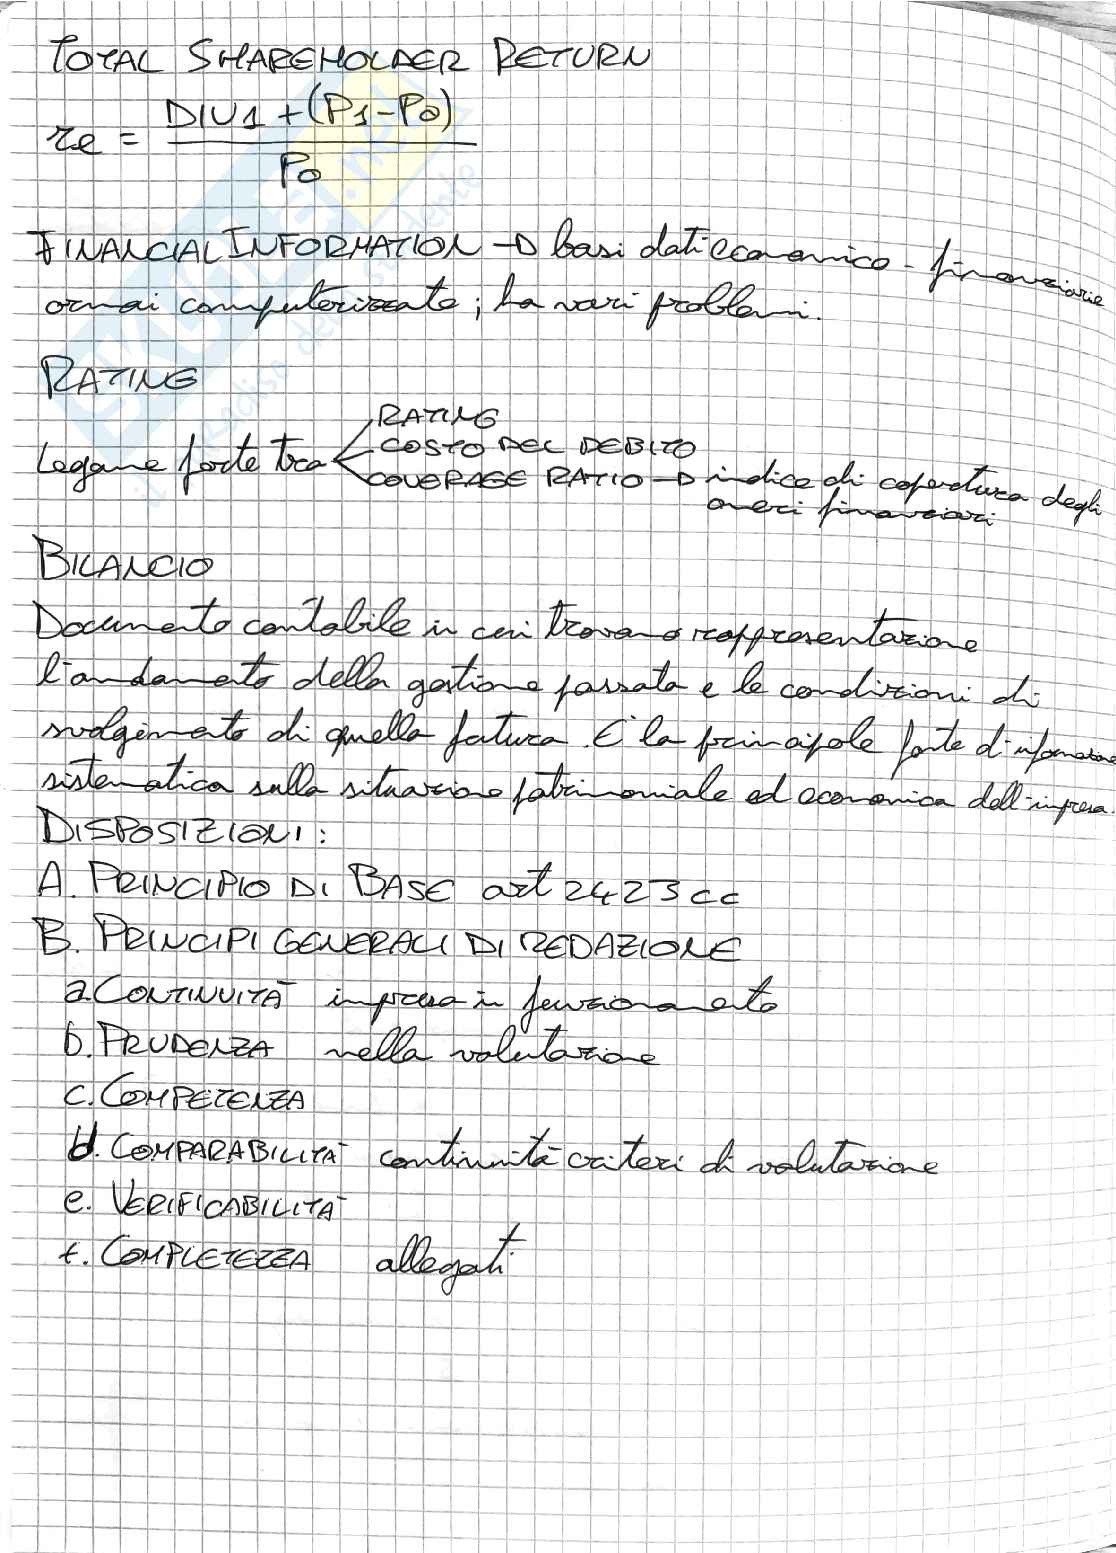 TOTAL SHAREHOLDER RETURN
re = DIV1 + (P1 - P0)
P0
FINANCIAL INFORMATION → basi dati economico - finanziarie
ormai computerizzate; ha vari problemi.
RATING
Legame forte tra
RATING
COSTO DEL DEBITO
COVERAGE RATIO → indice di copertura degli
oneri finanziari
BILANCIO
Documento contabile in cui trovano rappresentazione
l'andamento della gestione passata e le condizioni di
svolgimento di quella futura. È la principale fonte d'informazione
sistematica sulla situazione patrimoniale ed economica dell'impresa.
DISPOSIZIONI:
A. PRINCIPIO DI BASE art 2423 cc
B. PRINCIPI GENERALI DI REDAZIONE
a. CONTINUITÀ impresa in funzionamento
b. PRUDENZA nella valutazione
c. COMPETENZA
d. COMPARABILITÀ continuità criteri di valutazione
e. VERIFICABILITÀ
f. COMPLETEZZA allegati
SKUOLA.net
il paradiso dello studente